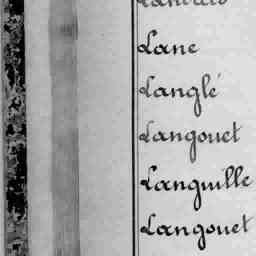 Lane
Langlé
Langouet
Languille
Langouet